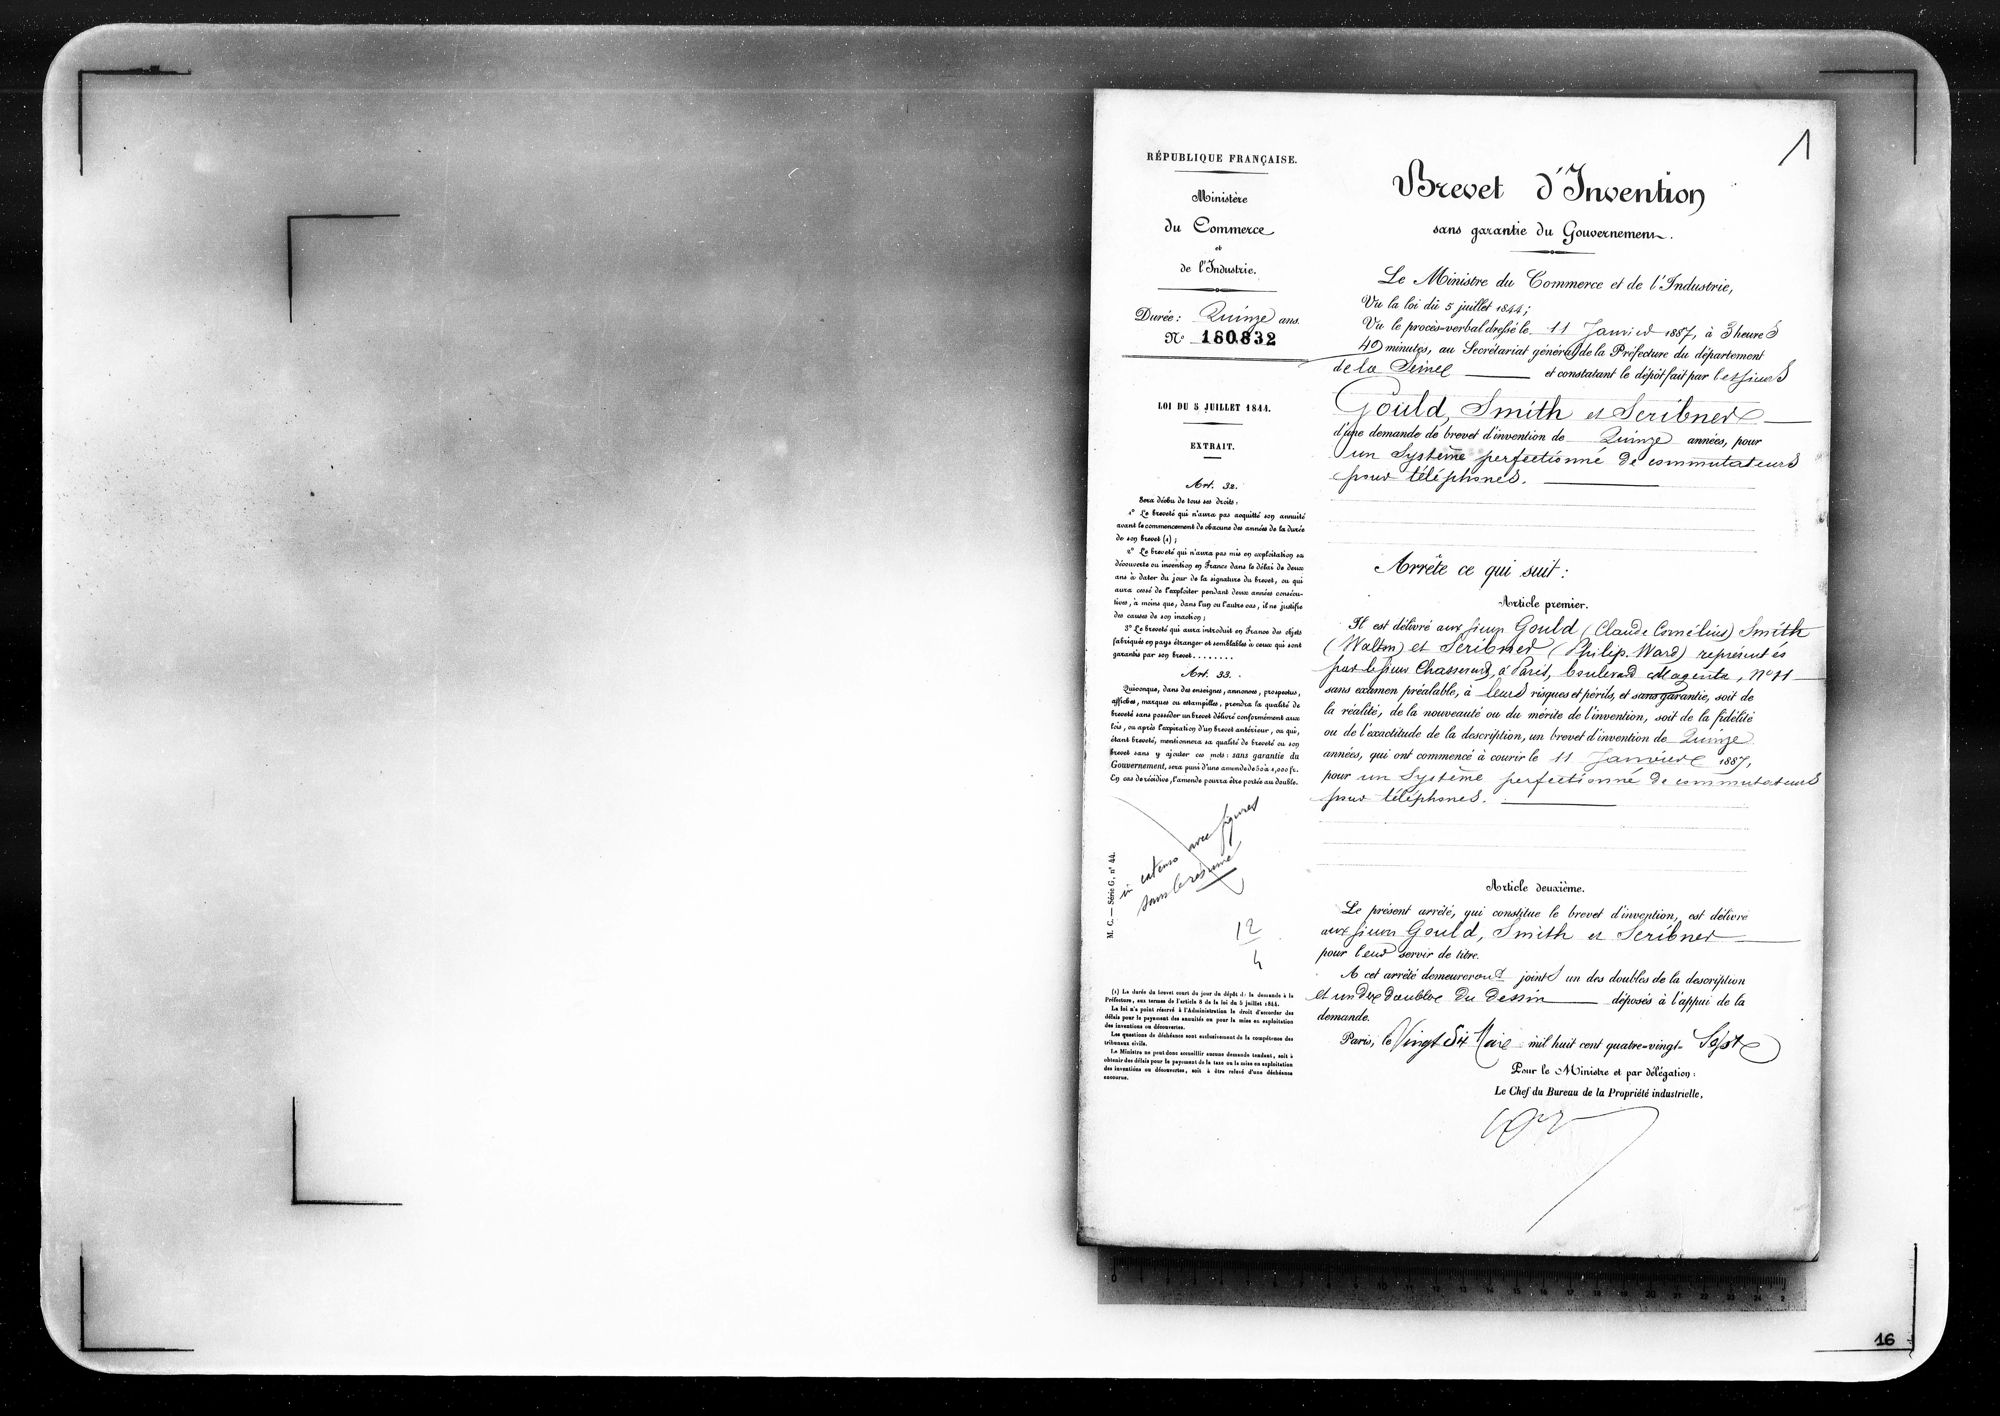 1
RÉPUBLIQUE FRANÇAISE.
Ministère
du Commerce
et
de l'Industrie.
Durée: Quinze ans.
N° 180.832
LOI DU 5 JUILLET 1844.
EXTRAIT.
Art. 32.
Sera déchu de tous ses droits:
1° Le breveté qui n'aura pas acquitté son annuité
avant le commencement de chacune des années de la durée
de son brevet (1);
2° Le breveté qui n'aura pas mis en exploitation sa
découverte ou invention en France dans le délai de deux
ans à dater du jour de la signature du brevet, ou qui
aura cessé de l'exploiter pendant deux années consécu-
tives, à moins que, dans l'un ou l'autre cas, il ne justifie
des causes de son inaction;
3° Le breveté qui aura introduit en France des objets
fabriqués en pays étranger et semblables à ceux qui sont
garantis par son brevet........
Art. 33.
Quiconque, dans des enseignes, annonces, prospectus,
affiches, marques ou estampilles, prendra la qualité de
breveté sans posséder un brevet délivré conformément aux
lois, ou après l'expiration d'un brevet antérieur, ou qui,
étant breveté, mentionnera sa qualité de breveté ou son
brevet sans y ajouter ces mots: sans garantie du
Gouvernement, sera puni d'une amende de 50 à 1,000 fr.
En cas de récidive, l'amende pourra être portée au double.
in extenso avec figures
sans le résumé
12
4
M. C. — Série G, n° 44.
(1) La durée du brevet court du jour du dépôt de la demande à la
Préfecture, aux termes de l'article 8 de la loi du 5 juillet 1844.
La loi n'a point réservé à l'Administration le droit d'accorder des
délais pour le payement des annuités ou pour la mise en exploitation
des inventions ou découvertes.
Les questions de déchéance sont exclusivement de la compétence des
tribunaux civils.
Le Ministre ne peut donc accueillir aucune demande tendant, soit à
obtenir des délais pour le payement de la taxe ou la mise en exploitation
des inventions ou découvertes, soit à être relevé d'une déchéance
encourue.
Brevet d'Invention
sans garantie du Gouvernement.
Le Ministre du Commerce et de l'Industrie,
Vu la loi du 5 juillet 1844;
Vu le procès-verbal dressé le 11 Janvier 1887, à 3 heures
40 minutes, au Secrétariat général de la Préfecture du département
de la Seine et constatant le dépôt fait par les sieurs
Gould, Smith et Scribner
d'une demande de brevet d'invention de Quinze années, pour
un Système perfectionné de commutateurs
pour téléphones.
Arrête ce qui suit:
Article premier.
Il est délivré aux sieurs Gould (Claude Cornélius) Smith
(Walton) et Scribner (Philip. Ward) représentés
par le sieur Chassevent, à Paris, boulevard Magenta, N° 11
sans examen préalable, à leurs risques et périls, et sans garantie, soit de
la réalité, de la nouveauté ou du mérite de l'invention, soit de la fidélité
ou de l'exactitude de la description, un brevet d'invention de Quinze
années, qui ont commencé à courir le 11 Janvier 1887,
pour un Système perfectionné de commutateurs
pour téléphones.
Article deuxième.
Le présent arrêté, qui constitue le brevet d'invention, est délivré
aux sieurs Gould, Smith et Scribner
pour leur servir de titre.
A cet arrêté demeureront joints un des doubles de la description
et un des doubles du dessin déposés à l'appui de la
demande.
Paris, le Vingt six Mars mil huit cent quatre-vingt- Sept
Pour le Ministre et par délégation:
Le Chef du Bureau de la Propriété industrielle,
16